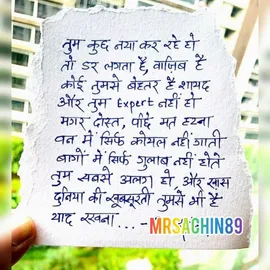 तुम कुछ नया कर रहे हो
तो डर लगता है, वाज़िब है
कोई तुमसे बेहतर है शायद
और तुम Expert नहीं हो
मगर दोस्त, पीछे मत हटना
वन में सिर्फ कोयल नहीं गाती
बागों में सिर्फ गुलाब नहीं होते
तुम सबसे अलग हो और खास
दुनिया की खूबसूरती तुमसे भी है
याद रखना... -
MRSACHIN89